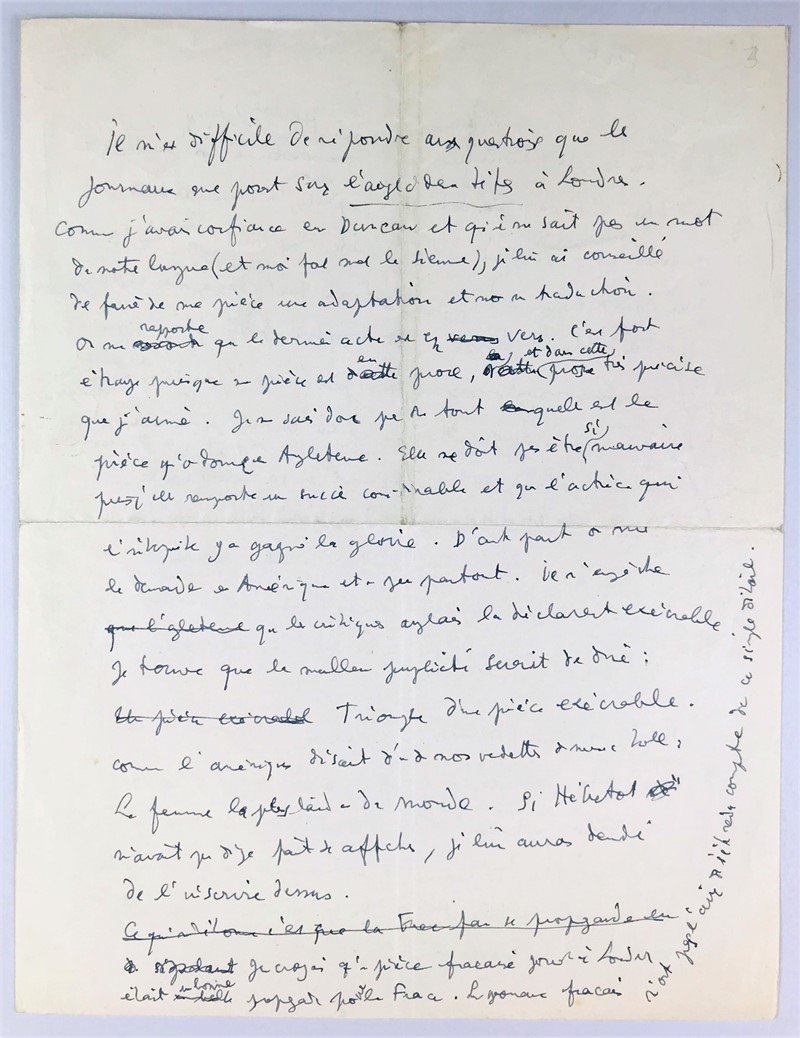 3
Il m'est difficile de répondre aux questions que les
journaux me posent sur l'aigle à deux têtes à Londres.
Comme j'avais confiance en Duncan et qu'il ne sait pas un mot
de notre langue (et moi fort mal la sienne), je lui ai conseillé
de faire de ma pièce une adaptation et non une traduction.
Or on me rapporte que le dernier acte est en vers. C'est fort
étrange puisque ma pièce est en prose, et dans cette prose très précise
que j'aime. Je ne sais donc pas du tout quelle est la
pièce qu'on donne en Angleterre. Elle ne doit pas être si mauvaise
puisqu'elle remporte un succès considérable et que l'actrice qui
l'interprète y a gagné la gloire. D'autre part on me
la demande en Amérique et un peu partout. Il n'empêche
que l'Angleterre que les critiques anglais la déclarent exécrable
Je trouve que la meilleure publicité serait de dire :
Une pièce exécrable Triomphe d'une pièce exécrable.
comme l'amérique disait d'une de nos vedettes de music hall :
La femme la plus laide du monde. Si Hébertot
n'avait pas déjà fait ses affiches, je lui aurais demandé
de l'inscrire dessus.
que la France fasse sa propagande en
Je croyais qu'une pièce française jouée à Londres
était en belle une bonne propagande pour la France. Le journal français
n'ont jugé ainsi
rendu compte de ce simple détail.